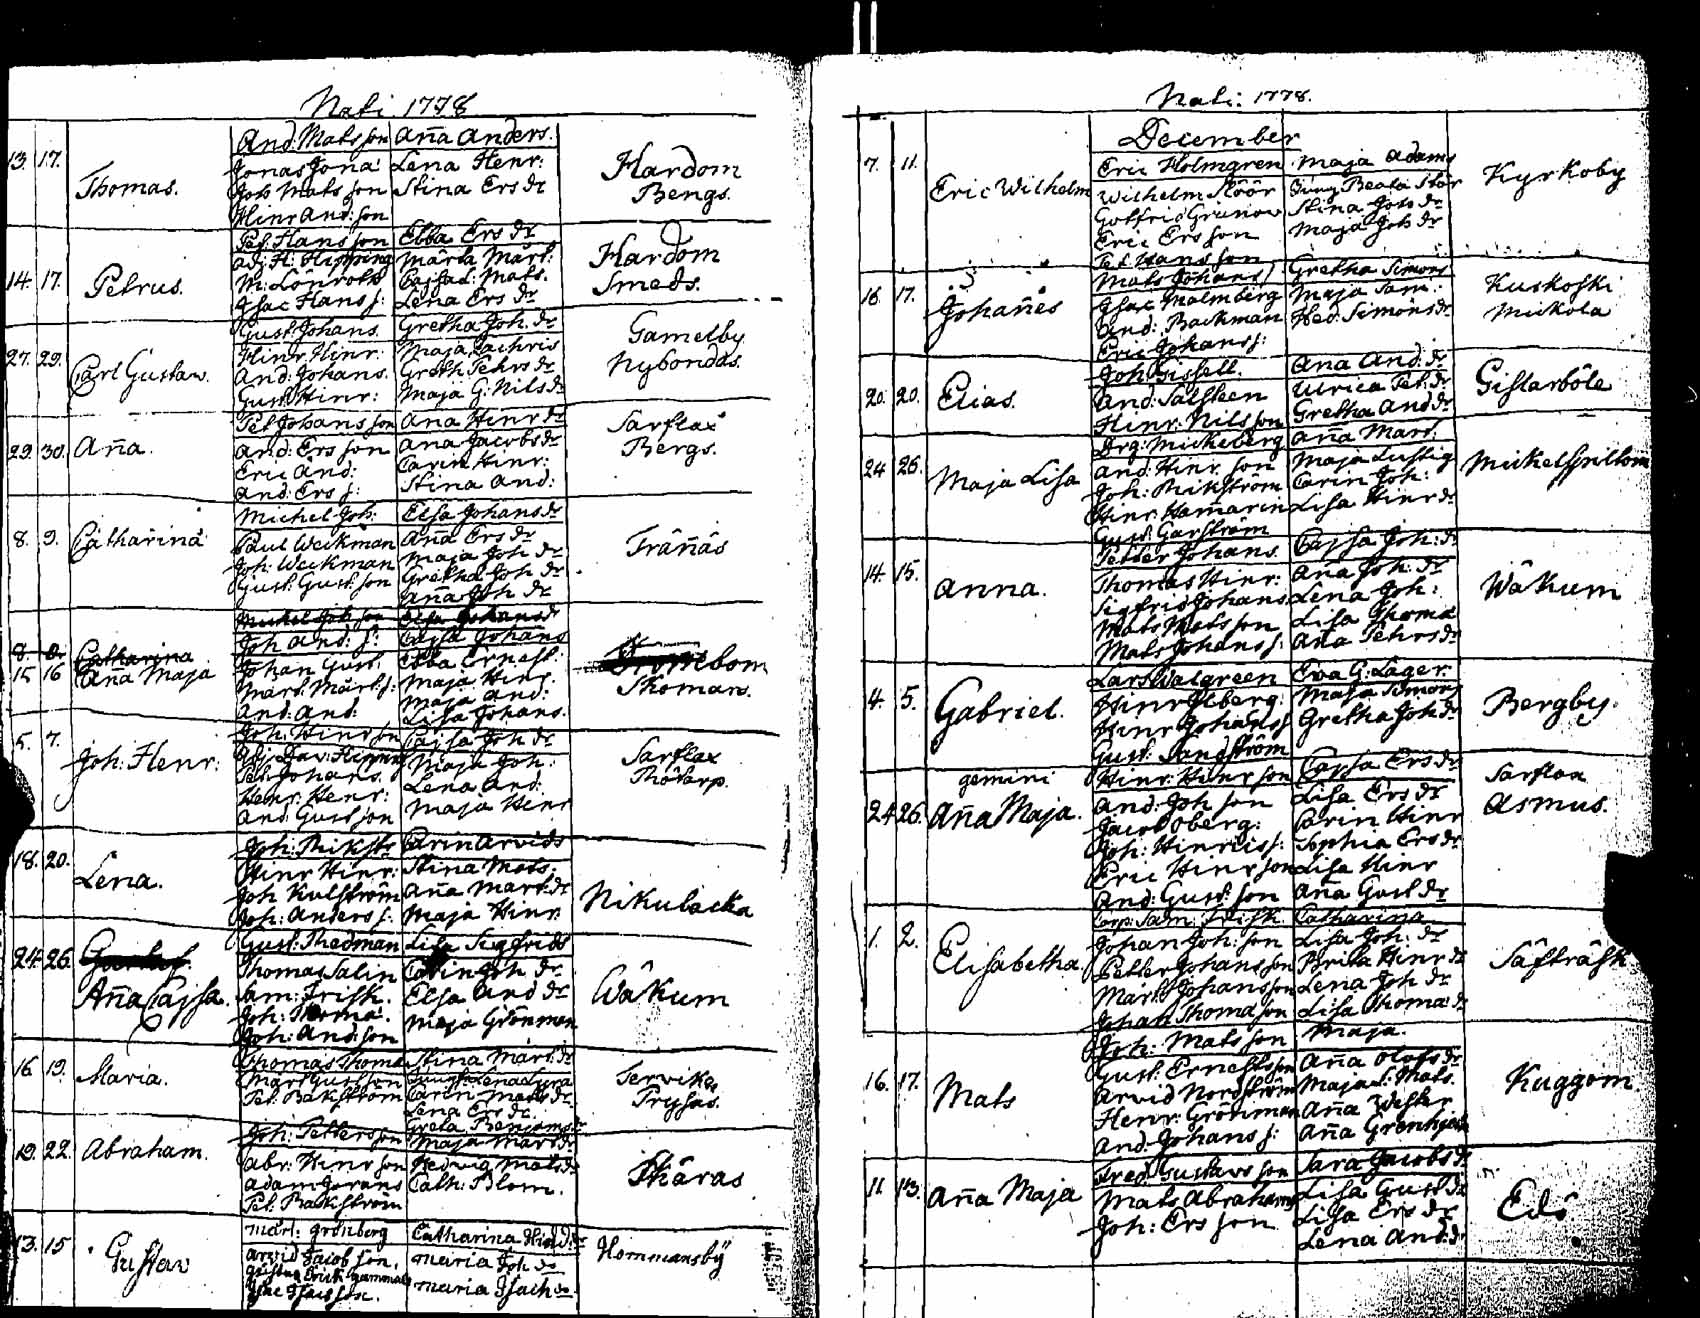 Nati 1778
And: Matsson Aña Anders.
13. 17. Thomas. Jonas Jona: Lena Henr: Hardom
Joh Mats son Stina Ers dr Bengs.
Hinr And: son
Pet: Hans son Ebba Ers dr
Adj: H: Hipping Märta Märt: Hardom
14. 17. Petrus. M: Lönroth Cajsa d: Mats. Smeds.
Isac Hans s: Lena Ers dr
Gust: Johans. Gretha Joh: dr Gamelby
27. 29. Carl Gustaw. Hinr Hinr: Maja Zachris Nybondas.
And: Johans. Greth Pehrs dr
Gust: Hinr: Maja G: Nils dr
Pet Johans son Ana Hinr dr Sarflax
29. 30. Aña. And: Ers son Ana Jacobs dr Bergs.
Eric And: Carin Hinr:
And: Ers s: Stina And:
Michel Joh: Elsa Johans dr
8. 9. Catharina Paul Weckman Ana Ers dr Tränäs
Joh: Weckman Maja Joh dr
Gust: Gust: son Gretha Joh dr
Aña Joh dr
Michel Joh son Elsa Johans dr
8. 9. Catharina Joh And: s: Cajsa Johans
15 16 Aña Maja Johan Gust: Ebba Ernest:
Märt: Märt s: Maja Hinr Skomars.
And: And: Maja And:
Lisa Johans.
Joh: Hinr son Cajsa Joh dr
5. 7. Joh: Henr: Adj: Dav: Hipping Maja Joh: Sarflax
Pet: Johans. Lena And: Thôtarp.
Henr: Henr: Maja Henr
And: Gust son
Joh: Rikstr Carin Arvids
18. 20. Lena. Hinr Hinr: Stina Mats:
Joh Kulström Aña Märt: dr Nikulacka
Joh: Anders s: Maja Hinr
Gust: Thedman Lisa Sigfrids
24. 26. Thomas Salin Carin Joh dr
Aña Cajsa. Sam: Frisk. Elsa And dr Wåkum
Joh: Thoma: Maja Grönman
Joh: And: son
16 19. Maria. Thomas Thoma Stina Märt: dr
Märt Gust son Jungf: Lena Lyra Servika
Pet: Bäkström Carin Mats dr Prysas.
Lena Ers dr
Greta Benjams:
19. 22. Abraham. Joh: Petters son Maja Märt dr
Abr: Hinr son Hedvig Mats dr Skäras
Adam Jorans Cath: Blom.
Pet: Backström
13. 15 Gustav Märt: Grönberg Catharina Hind: dr
Arvid Jacob son. Maria Joh do Hommansbÿ
Isac Isacs son. Maria Isach do
Nati: 1778.
December
7. 11. Eric Wilhelm Eric Holmgren Maja Adams Kyrkoby
Wilhelm Stöör Jung Beata Stör
Gotfrid Grunow Stina Joh dr
Eric Ers son Maja Joh dr
Pet Hans son
16. 17. Johañes Mats Johans s Gretha Simons Kuskoski
Isac Malmberg Maja Sam: Mickola
And: Backman Hed: Simons dr
Eric Johans s:
20. 20. Elias. Joh Gissell. Ana And: dr Gislarböle
And: Salsteen Ulrica Pet: dr
Hinr: Nils son Gretha And dr
24 26. Maja Lisa Drg: Mickelberg Aña Märt: Mickelspiltom
And: Hinr. son Maja Lustig
Joh: Rikström Carin Joh:
Hinr Hamarin Lisa Hinr dr
Gust: Garström
14. 15. Anna. Petter Johans. Cajsa Joh: dr Wåkum
Thomas Hinr: Aña Joh: dr
Sigfrid Johans Lena Joh:
Mats Mats son Lisa Thoma
Mats Johans s: Aña Pehrs dr
4. 5. Gabriel. Lars Walgreen Eva G: Lager. Bergby.
Hinr Öhberg: Maja Simons
Hinr Johans s Gretha Joh dr
Gust: Sandström
gemini Hinr: Hinr son Cajsa Ers dr Sarflax
24 26. Aña Maja. And: Joh son Lisa Ers dr Asmus.
Jacob Öberg: Carin Hinr
Joh: Hinrics s: Sophia Ers dr
Eric Hinr son Lisa Hinr
And: Gust: son Aña Gust dr
1. 2. Elisabetha Corp: Sam: Frisk Catharina Säfträsk
Johan Joh: son Lisa Joh: dr
Petter Johans son Brita Hinr dr
Märt Johans son Lena Joh dr
Johan Thoma son Lisa Thoma dr
Joh: Mats son Maja.
16. 17. Mats Gust: Ernests son Aña Olofs dr Kuggom
Arvid Nordström Maja d: Mats
Henr: Grönman Aña Wester
And: Johans s: Aña Grenhjelm
11. 13. Aña Maja Fred: Gustavs son Sara Jacobs dr Edö
Mats Abrahams Lisa Gust dr
Joh: Ers son Lisa Ers dr
Lena And: d: